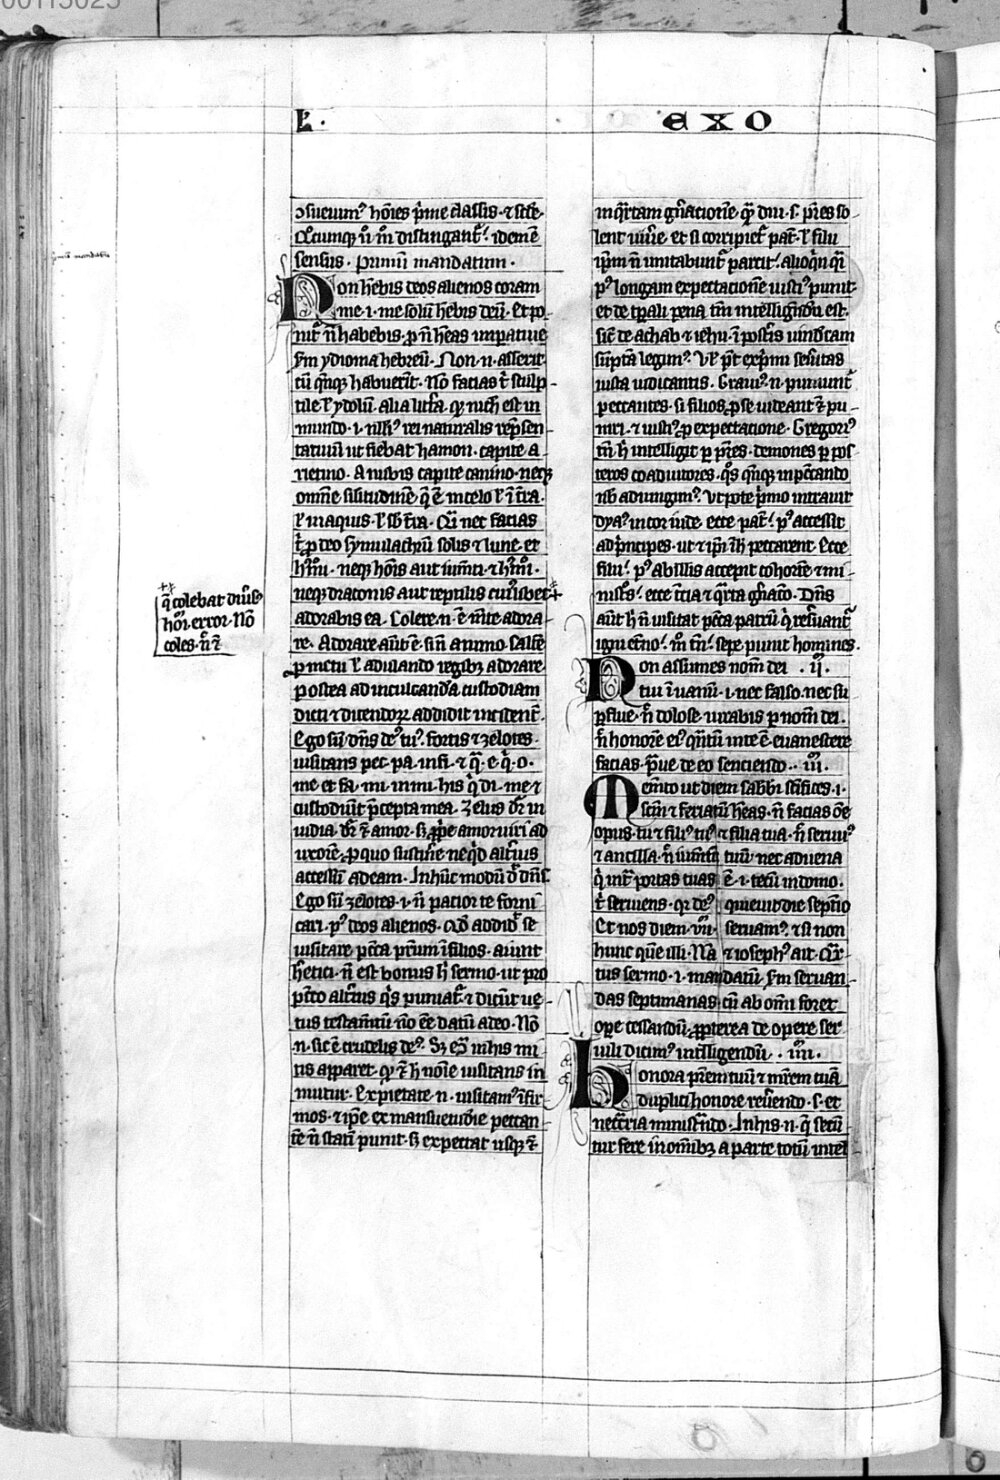 00113025
L.
EXO
ɔsueuim⁹ hōies p̄me classis. ⁊ sēde.
sensus. Primū mandatum.
Non hēbis deos alienos coram
me .i. me solū hēbis deū. Et po
nit᷑ ñ habebis. p ñ hēas impatiue
s̄m ydioma hebreū. Non .n. asserit
tū qn̄q habuerīt. Nō facias t̄ sculp-
tile ł ydolū. Alia lītīa qr nichil est in
mundo .i. nłłi⁹ rei naturalis rep̄sen
tatiuū ut fiebat hamon. capite a
rietino. Anubis capite canino. neqꝫ
omnē silitudinē q̄ ē in celo ł ī t̄ra.
ł in aquis. ł sb̄ t̄ra. Qūi nec facias
t̄ p deo symulachrū solis ⁊ lune. et
neqꝫ draconis aut reptilis cui⁹libet
adorabis ea. Colere .n. ē mēte adora-
re. Adorare aūt ē. si ñ animo. saltē
p metu ł adulando regibꝫ adorare
postea ad inculcandā custodiam
dicti ⁊ dicendoꝝ addidit incident᷑.
Ego sū dn̄s de⁹ tu⁹. fortis ⁊ zelotes.
uisitans pec. pa. in fi. ⁊ q̄. e. q̄. o.
me et fa. mi. in mi. his q̄ di. me ⁊
custodiūt p̄cepta mea. Zelus dr̄ in
uidia. dr̄ ⁊ amor. sꝫ p̄pe amor uiri ad
uxorē. p quo sustinē neq̄d alt̄ius
accessū ad eam. In hūc modū d̄ dn̄s.
Ego sū zelotes .i. ñ patior te forni
cari. p⁹ deos alienos. Qd̄ addid̄ se
uisitare pēcta p̄rum ī filios. aiunt
hētici. ñ est bonus hͥ sermo. ut pro
pēcto alt̄ius q̄s puniat᷑. ⁊ dicūt ue-
tus testam̄tū nō eē datū a deo. Nō
.n. sic ē crudelis de⁹. Sꝫ eē in his mi
tis apparet. qr ⁊ h̄ noīe uisitans in
nuitur. Ex pietate .n. uisitam⁹ īfir
mos. ⁊ ipē ex mansuetudīe peccan
tē ñ statī punit. sꝫ expectat usqꝫ ⁊
q̄ colebat diu⁹so
hoī. error. Nō
coles. ñ. ⁊
in q̄rtam gn̄ationē. qr diu .s. p̄res so
lent uiuē. et si corripiet᷑ pat᷑. ł filii
ip̄m ñ imitabunt᷑ parcit᷑. alioq̄n q̄i
p⁹ longam expectationē iusti⁹ punit.
et de tp̄ali pena tm̄ intelligēdū est.
sic̄ de achab ⁊ iehu. ī postīs uindictam
sūptā legim⁹. Uł p̄t exp̄mi seūitas
iusta iudicantis. Graui⁹ .n. puniunt᷑
peccantes. si filios p se uideant ⁊ pu-
niri. ⁊ iusti⁹ p expectatione. Gregori⁹
tn̄ hͥ intelligit p p̄res. demones p pos
teros coadiutores. q̄s qn̄q in peccando
nob̄ adiungim⁹. Ut pote p̄mo intrauit
dya⁹ in cor iude. ecce pat᷑. p⁹ accessit
ad p̄ncipes. ut ⁊ ip̄i ih̄ peccarent. Ecce
filii. p⁹ ab illis accepit cohortē ⁊ mi-
nist̄s. ecce t̄cia ⁊ q̄rta gn̄atō. Dn̄s
aūt hͥ ñ uisitat pēcta patrū q̄ res̄uant᷑
igni et̄no. m̄ tn̄ sepe punit homines.
Non assumes nom̄ dei .ii.
tui ī uanū .i. nec falso. nec su
p̄flue. ñ dolose iurabis p nom̄ dei.
ñ honorē ei⁹ qn̄tū in te ē euanescere
facias. p̄ue de eo senciendo. .iii.
Memēto ut diem sabb̄i sc̄ifices .i.
sc̄m ⁊ feriatū hēas. ñ facias oē
opus. tu ⁊ fili⁹ tu⁹ ⁊ filia tua. ñ seruu⁹
⁊ ancilla. ñ iumt̄ū tuū. nec aduena
q̄ int᷑ portas tuas ē .i. tecū in domo.
t̄ seruiens. qr de⁹ quieuit die septīo
Et nos diem .vii. seruam⁹. ⁊ si non
hunc quē illi. Nā ⁊ ioseph⁹ ait. Qr̄-
tus sermo .i. mandatū. s̄m seruan-
das septimanas. cū ab omni foret
ope cessandū. p̄pterea de opere ser
uili dicim⁹ intelligendū. .iiii.
Honora p̄rem tuū ⁊ mr̄em tuā
duplici honore reūendo .s. et
necc̄ria minist̄ndo. In his .n. q̄ secū
tur fere in omībꝫ a parte totū intel